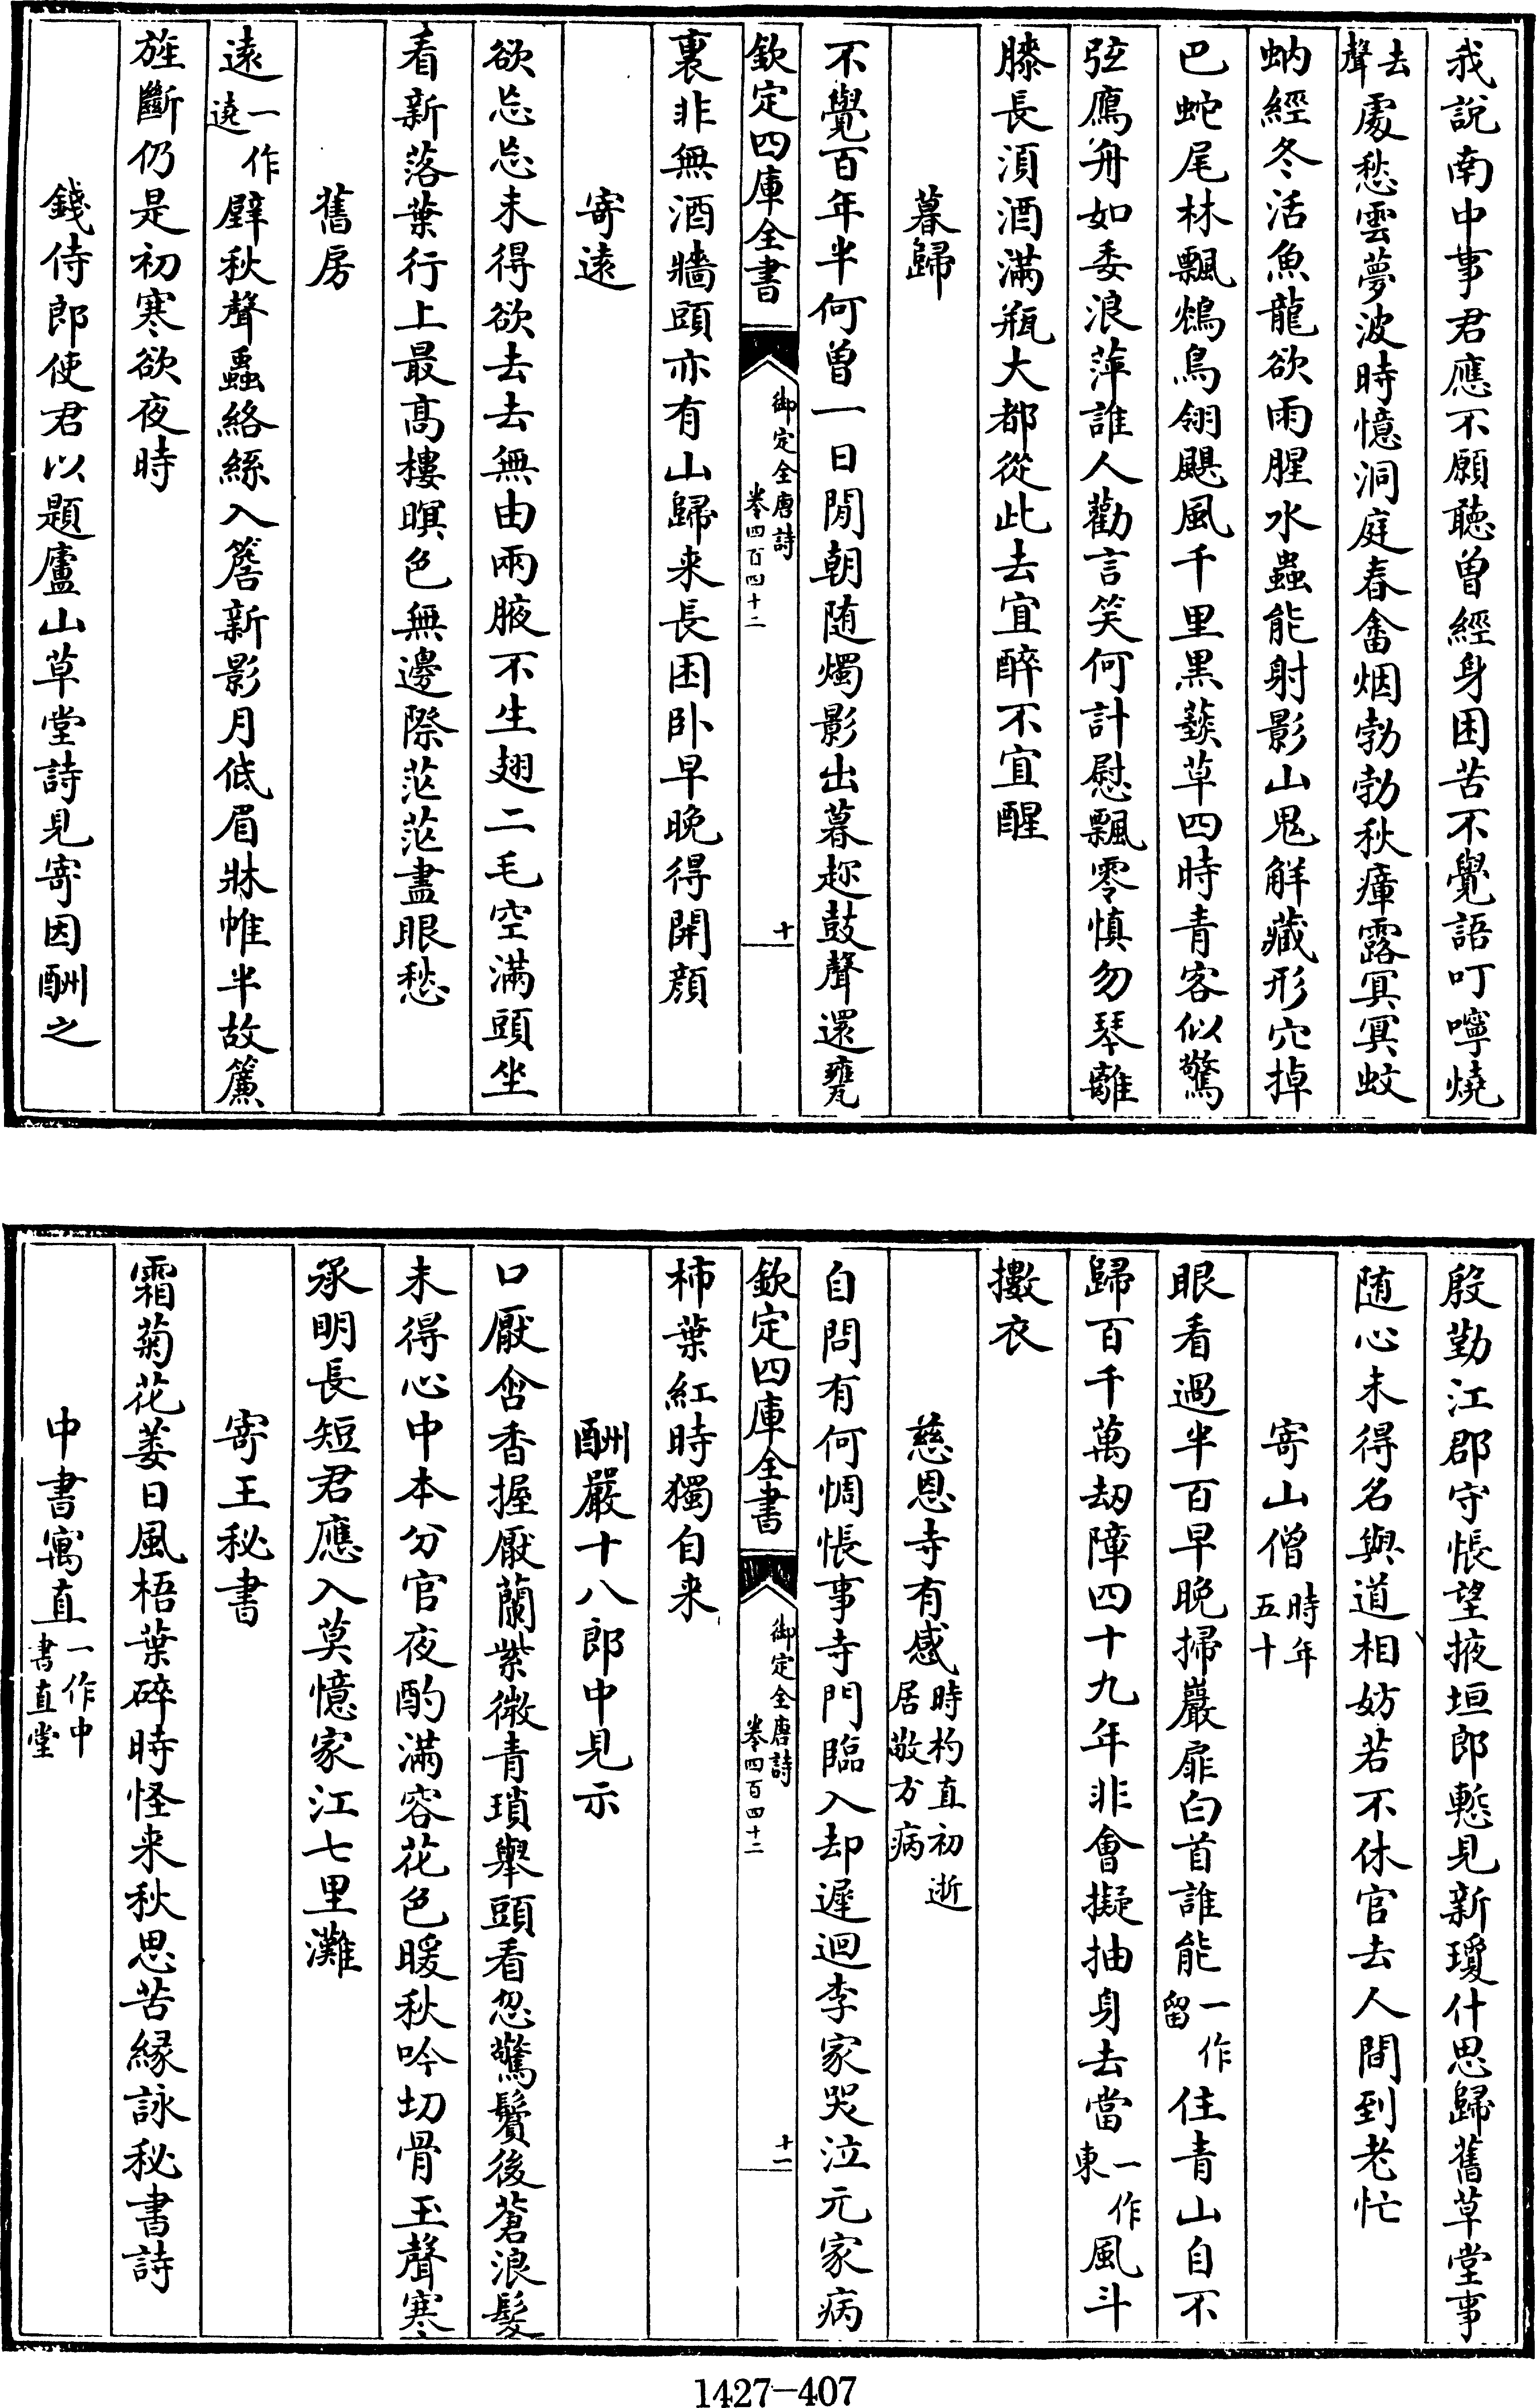 我說南中事君應不願聽曽經身困苦不覺語叮嚀燒
去聲處愁雲夢波時憶洞庭春畬烟勃勃秋瘴露冥冥蚊
蚋經冬活魚龍欲雨腥水蟲能射影山鬼解藏形穴掉
巴蛇尾林飄鴆鳥翎颶風千里黒蕟草四時青客似驚
弦鴈舟如委浪萍誰人勸言笑何計慰飄零慎勿琴離
膝長須酒滿瓶大都從此去宜醉不宜醒
暮歸
不覺百年半何曽一日閒朝随燭影出暮趂鼓聲還甕
欽定四庫全書
御定全唐詩
卷四百四十二
十
裏非無酒牆頭亦有山歸来長困卧早晚得開顔
寄逺
欲忘忘未得欲去去無由兩腋不生翅二毛空滿頭坐
看新落葉行上最髙樓暝色無邊際茫茫盡眼愁
舊房
逺一作遶壁秋聲蟲絡絲入簷新影月低眉牀帷半故簾
旌斷仍是初寒欲夜時
錢侍郎使君以題廬山草堂詩見寄因酬之
殷勤江郡守悵望掖垣郎慙見新瓊什思歸舊草堂事
随心未得名與道相妨若不休官去人間到老忙
寄山僧時年五十
眼看過半百早晚掃巖扉白首誰能一作留住青山自不
歸百千萬刼障四十九年非會擬抽身去當一作東風斗
擻衣
慈恩寺有感時杓直初逝居敬方病
自問有何惆悵事寺門臨入却遲迴李家哭泣元家病
欽定四庫全書
御定全唐詩
卷四百四十二
十一
柿葉紅時獨自来
酬嚴十八郎中見示
口厭含香握厭蘭紫微青瑣舉頭看忽驚鬢後蒼浪髮
未得心中本分官夜酌滿容花色暖秋吟切骨玉聲寒
承明長短君應入莫憶家江七里灘
寄王秘書
霜菊花萎日風梧葉碎時怪来秋思苦縁詠秘書詩
中書寓直一作中書直堂
1427—407